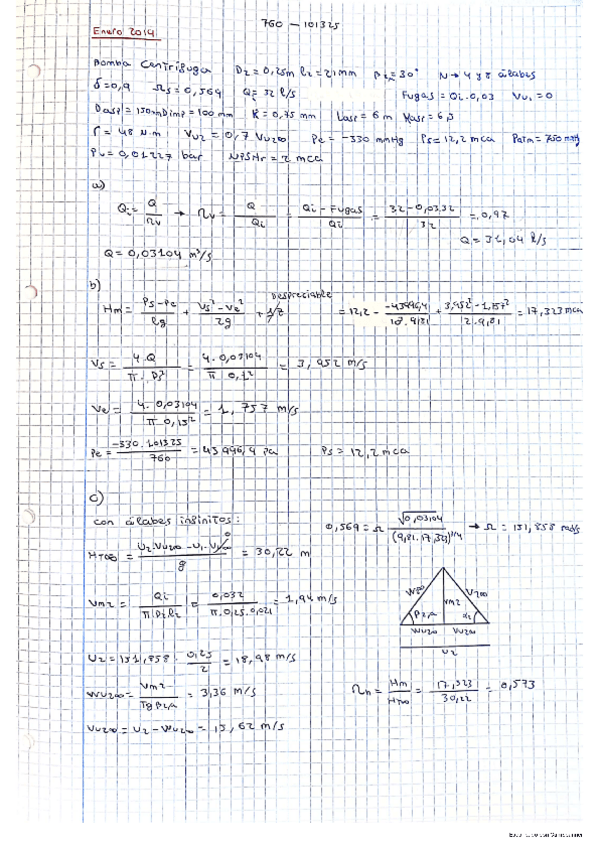 760 — 101325
Enero 2014
Bomba Centrífuga D₂ = 0,25m b₂ = 21mm β₂ = 30° N → 4 y 8 álabes
δ = 0,9 Ωs = 0,569 Qi = 32 l/s Fugas = Qi · 0,03 Vu₁ = 0
Dasp = 150mm Dimp = 100 mm K = 0,75 mm Lasp = 6 m Kasp = 6,5
Γ = 48 N·m Vu₂ = 0,7 Vu₂∞ Pe = -330 mmHg Ps = 12,2 mca Patm = 750 mmHg
Pv = 0,01227 bar NPSHr = 2 mca
a)
Qi = Q/ηv → ηv = Q/Qi = (Qi - Fugas)/Qi = (32 - 0,03·32)/32 = 0,97
Q = 31,04 l/s
Q = 0,03104 m³/s
b)
Despreciable
Hm = (Ps - Pe)/ρg + (Vs² - Ve²)/2g + = 12,2 - (-43996,4)/(10³·9,81) + (3,952² - 1,757²)/(2·9,81) = 17,323 mca
Vs = 4·Q/(π·Ds²) = 4·0,03104/(π·0,1²) = 3,952 m/s
Ve = 4·0,03104/(π·0,15²) = 1,757 m/s
Pe = -330·101325/760 = 43996,4 Pa Ps = 12,2 mca
c)
con álabes infinitos: 0,569 = Ω √0,03104/(9,81·17,323)^3/4 → Ω = 151,858 rad/s
HT∞ = (U₂·Vu₂∞ - U₁·Vu₁∞)/g = 30,22 m
0
W₂∞ Vm₂ V₂∞
Vm₂ = Qi/(π·D₂·b₂) = 0,032/(π·0,25·0,021) = 1,94 m/s
β₂ α₂
Wu₂∞ Vu₂∞
U₂
U₂ = 151,858 · 0,25/2 = 18,98 m/s
Wu₂∞ = Vm₂/Tg β₂ = 3,36 m/s ηh = Hm/HT∞ = 17,323/30,22 = 0,573
Vu₂∞ = U₂ - Wu₂∞ = 15,62 m/s